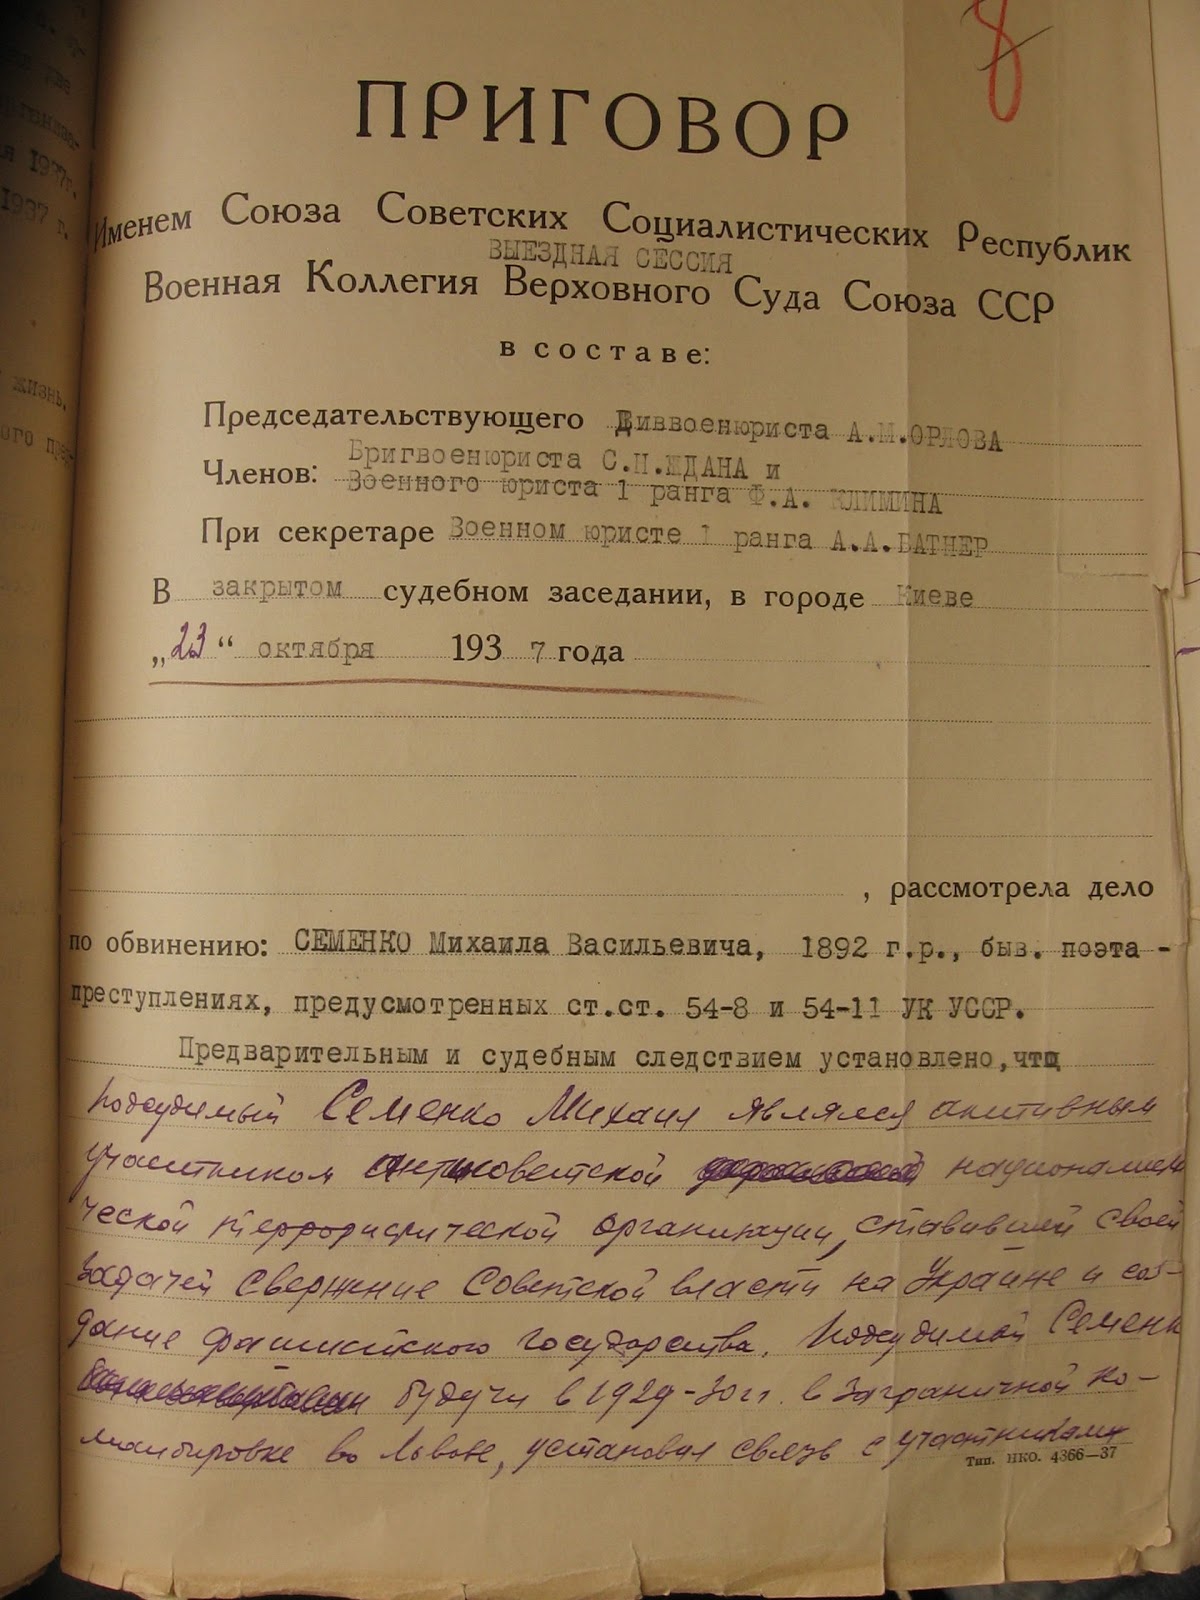 8
ПРИГОВОР
Именем Союза Советских Социалистических Республик
ВЫЕЗДНАЯ СЕССИЯ
Военная Коллегия Верховного Суда Союза ССР
в составе:
Председательствующего Диввоенюриста А.М.ОРЛОВА
Членов: Бригвоенюриста С.Н.ЖДАНА и
Военного юриста 1 ранга Ф.А. КЛИМИНА
При секретаре Военном юристе 1 ранга А.А.БАТНЕР
В закрытом судебном заседании, в городе Киеве
„23“ октября 1937 года
, рассмотрела дело
по обвинению: СЕМЕНКО Михаила Васильевича, 1892 г.р., быв. поэта -
преступлениях, предусмотренных ст.ст. 54-8 и 54-11 УК УССР.
Предварительным и судебным следствием установлено, что
подсудимый Семенко Михаил являлся активным
участником антисоветской националисти
ческой террористической организации, ставившей своей
задачей свержение Советской власти на Украине и соз-
дание фашистского государства. Подсудимый Семенк
будучи в 1929-30 гг. в заграничной ко-
мандировке во Львове, установил связь с участниками
Тип. НКО. 4366—37
1937г.
1937 г.
жизнь.